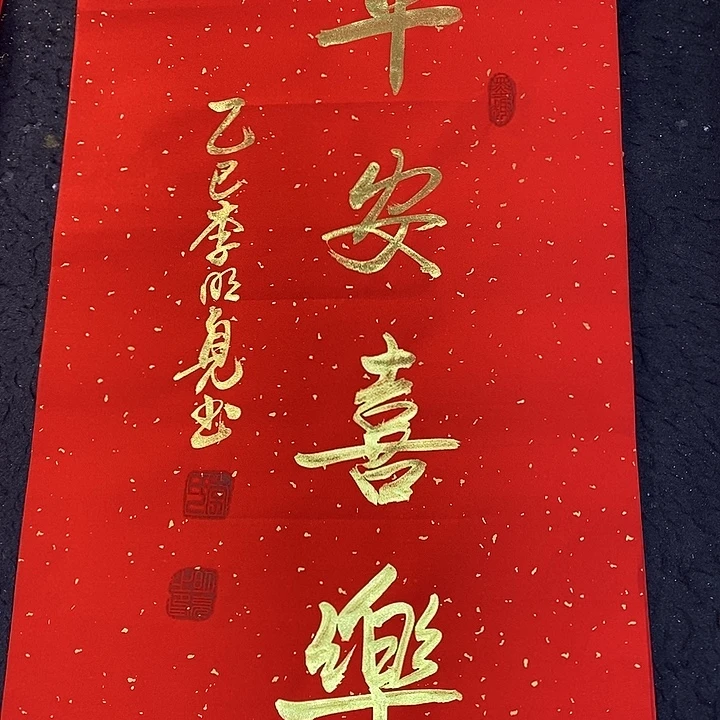 平安喜樂
乙巳李明見书